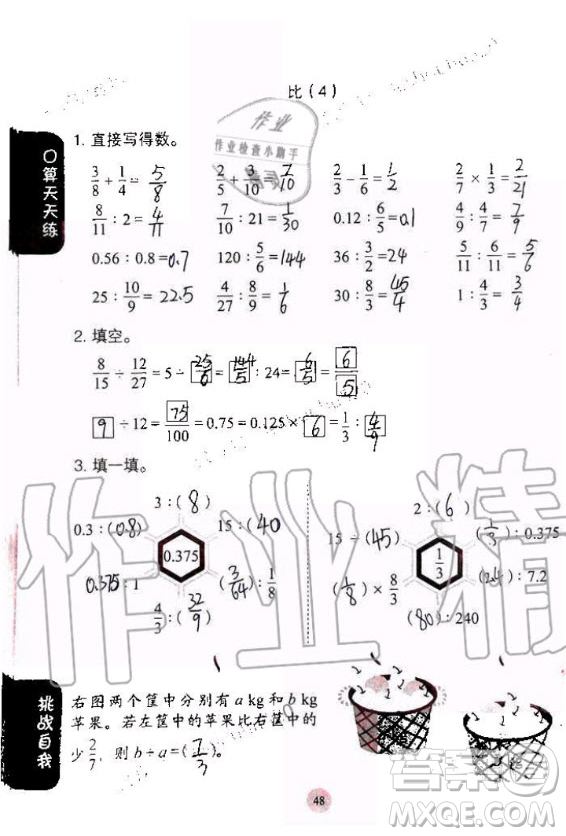 比(4)
作业
作业检查小助手
口算天天练
1. 直接写得数。
3/8 + 1/4 = 5/8  2/5 + 3/10 = 7/10  2/3 - 1/6 = 1/2  2/7 × 1/3 = 2/21
8/11 : 2 = 4/11  7/10 : 21 = 1/30  0.12 : 6/5 = 0.1  4/9 : 4/7 = 7/9
0.56 : 0.8 = 0.7  120 : 5/6 = 144  36 : 3/2 = 24  5/11 : 6/11 = 5/6
25 : 10/9 = 22.5  4/27 : 8/9 = 1/6  30 : 8/3 = 45/4  1 : 4/3 = 3/4
2. 填空。
8/15 ÷ 12/27 = 5 - 25/6 = 144/5 : 24 = 6/5 = 6/5
9 ÷ 12 = 75/100 = 0.75 = 0.125 × 6 = 1/3 : 4/9
3. 填一填。
3 : (8)  2 : (6)
0.3 : (0.8)  15 : (40  15 ÷ (45)  (1/3) : 0.375
0.375  1/3
0.375 : 1  (3/64) : 1/8  (1/8) × 8/3  (2.4) : 7.2
4/3 : (32/9)  (80) : 240
作业精
挑战自我
右图两个筐中分别有 a kg 和 b kg
苹果。若左筐中的苹果比右筐中的
少 2/7, 则 b ÷ a = (7/3)
48
答案圈
MXQE.COM